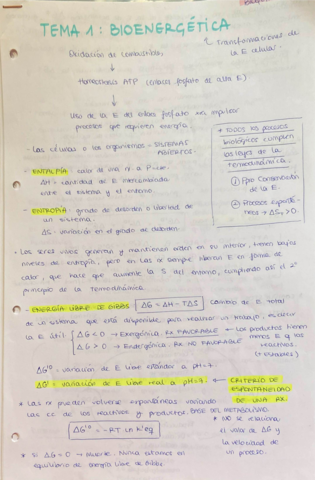 TEMA 1: BIOENERGÉTICA
Transformaciones de
la E celular.
Oxidación de combustibles
↓
Homeostasis ATP (enlaces fosfato de alta E)
↓
Uso de la E del enlace fosfato en impulsar
procesos que requieren energía.
- Las células o los organismos = SISTEMAS
ABIERTOS.
* TODOS los procesos
biológicos cumplen
las leyes de la
termodinámica.
① Ppo Conservación
de la E.
② Procesos espontá-
neos → ΔS > 0.
- ENTALPÍA: calor de una rx a P=cte.
ΔH = cantidad de E intercambiada
entre el sistema y el entorno
- ENTROPÍA: grado de desorden o libertad de
un sistema.
ΔS = variación en el grado de desorden
- Los seres vivos generan y mantienen orden en su interior, tienen bajos
niveles de entropía, pero en las rx siempre liberan E en forma de
calor, que hace que aumente la S del entorno, cumpliendo así el 2º
principio de la Termodinámica.
- ENERGÍA LIBRE DE GIBBS: ΔG = ΔH - TΔS Cambio de E total
de un sistema que está disponible para realizar un trabajo, es decir
la E útil
ΔG < 0 → Exergónica. Rx FAVORABLE ← Los productos tienen
menos E q los
reactivos.
(+ estables)
ΔG > 0 → Endergónica. Rx NO FAVORABLE
ΔG'º = variación de E libre estándar a pH=7.
ΔG' = variación de E libre real a pH=7. ← CRITERIO DE
ESPONTANEIDAD
DE UNA RX.
* Las rx pueden volverse espontáneas variando
las cc de los reactivos y productos. BASE DEL METABOLISMO
ΔG'º = -RT ln K'eq
* NO se relaciona
el valor de ΔG y
la velocidad de
un proceso.
* Si ΔG = 0 → Muerte. Nunca estamos en
equilibrio de energía libre de Gibbs